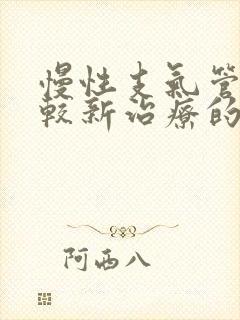 慢性支氣管
較新治療的
阿西八